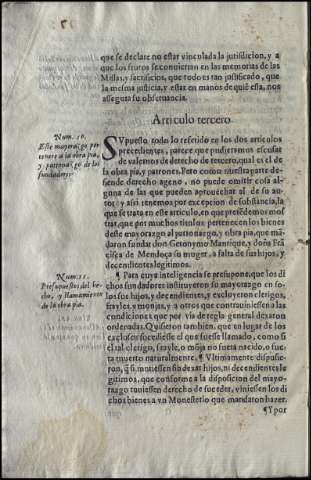 que se declare no estar vinculada la jurisdicion, y a
que los frutos se conuiertan en las memorias de las
Missas, y sacrificios, que todo es tan justificado, que
la mesma justicia, y estar en manos de quié essa, nos
assegura su obseruancia.
Articulo tercero.
Num. 10.
Este mayorazgo per
tenece a la obra pia,
y patronazgo de los
fundadores.
SVpuesto todo lo referido en los dos articulos
precedentes, parece que pudieramos escusar
de valernos de derecho de tercero, qual es el de
la obra pia, y patronos. Pero como nuestra parte de-
fiende derecho ageno, no puede omitir cosa algu-
na de las que pueden aprouechar al de su au-
tor; y assi tenemos por excepcion de substancia, la
que se trata en este articulo, en que pretédemos mos-
trar, que por muchos titulos pertenecen los bienes
deste mayorazgo al patronazgo, y obra pia, que má-
daron fundar don Geronymo Manrique, y doña Frá
cisca de Mendoça su muger, a falta de sus hijos, y
decendientes legitimos.
Num. 11.
Presupuestos del he-
cho, y llamamiento
de la obra pia.
¶ Para cuya inteligencia se presupone, que los di-
chos fundadores instituyeron su mayorazgo en so-
los sus hijos, y decendientes, y excluyeron clerigos,
frayles, y monjas, y a otros que contrauiniessen a las
condiciones que por via de regla general dexaron
ordenadas. Quisieron tambien, que en lugar de los
exclusos sucediesse el que fuesse llamado, como si
el tal clerigo, frayle, o mōja no fuera nacido, o fue-
ra muerto naturalmente. ¶ Vltimamente dispusie-
ron, q̃ si muriessen sin dexar hijos, ni decendientes le
gitimos, que conforme a la disposicion del mayo-
razgo tuuiessen derecho de suceder, viniessen los di
chos bienes a vn Monesterio que mandaron hazer.
¶Y por